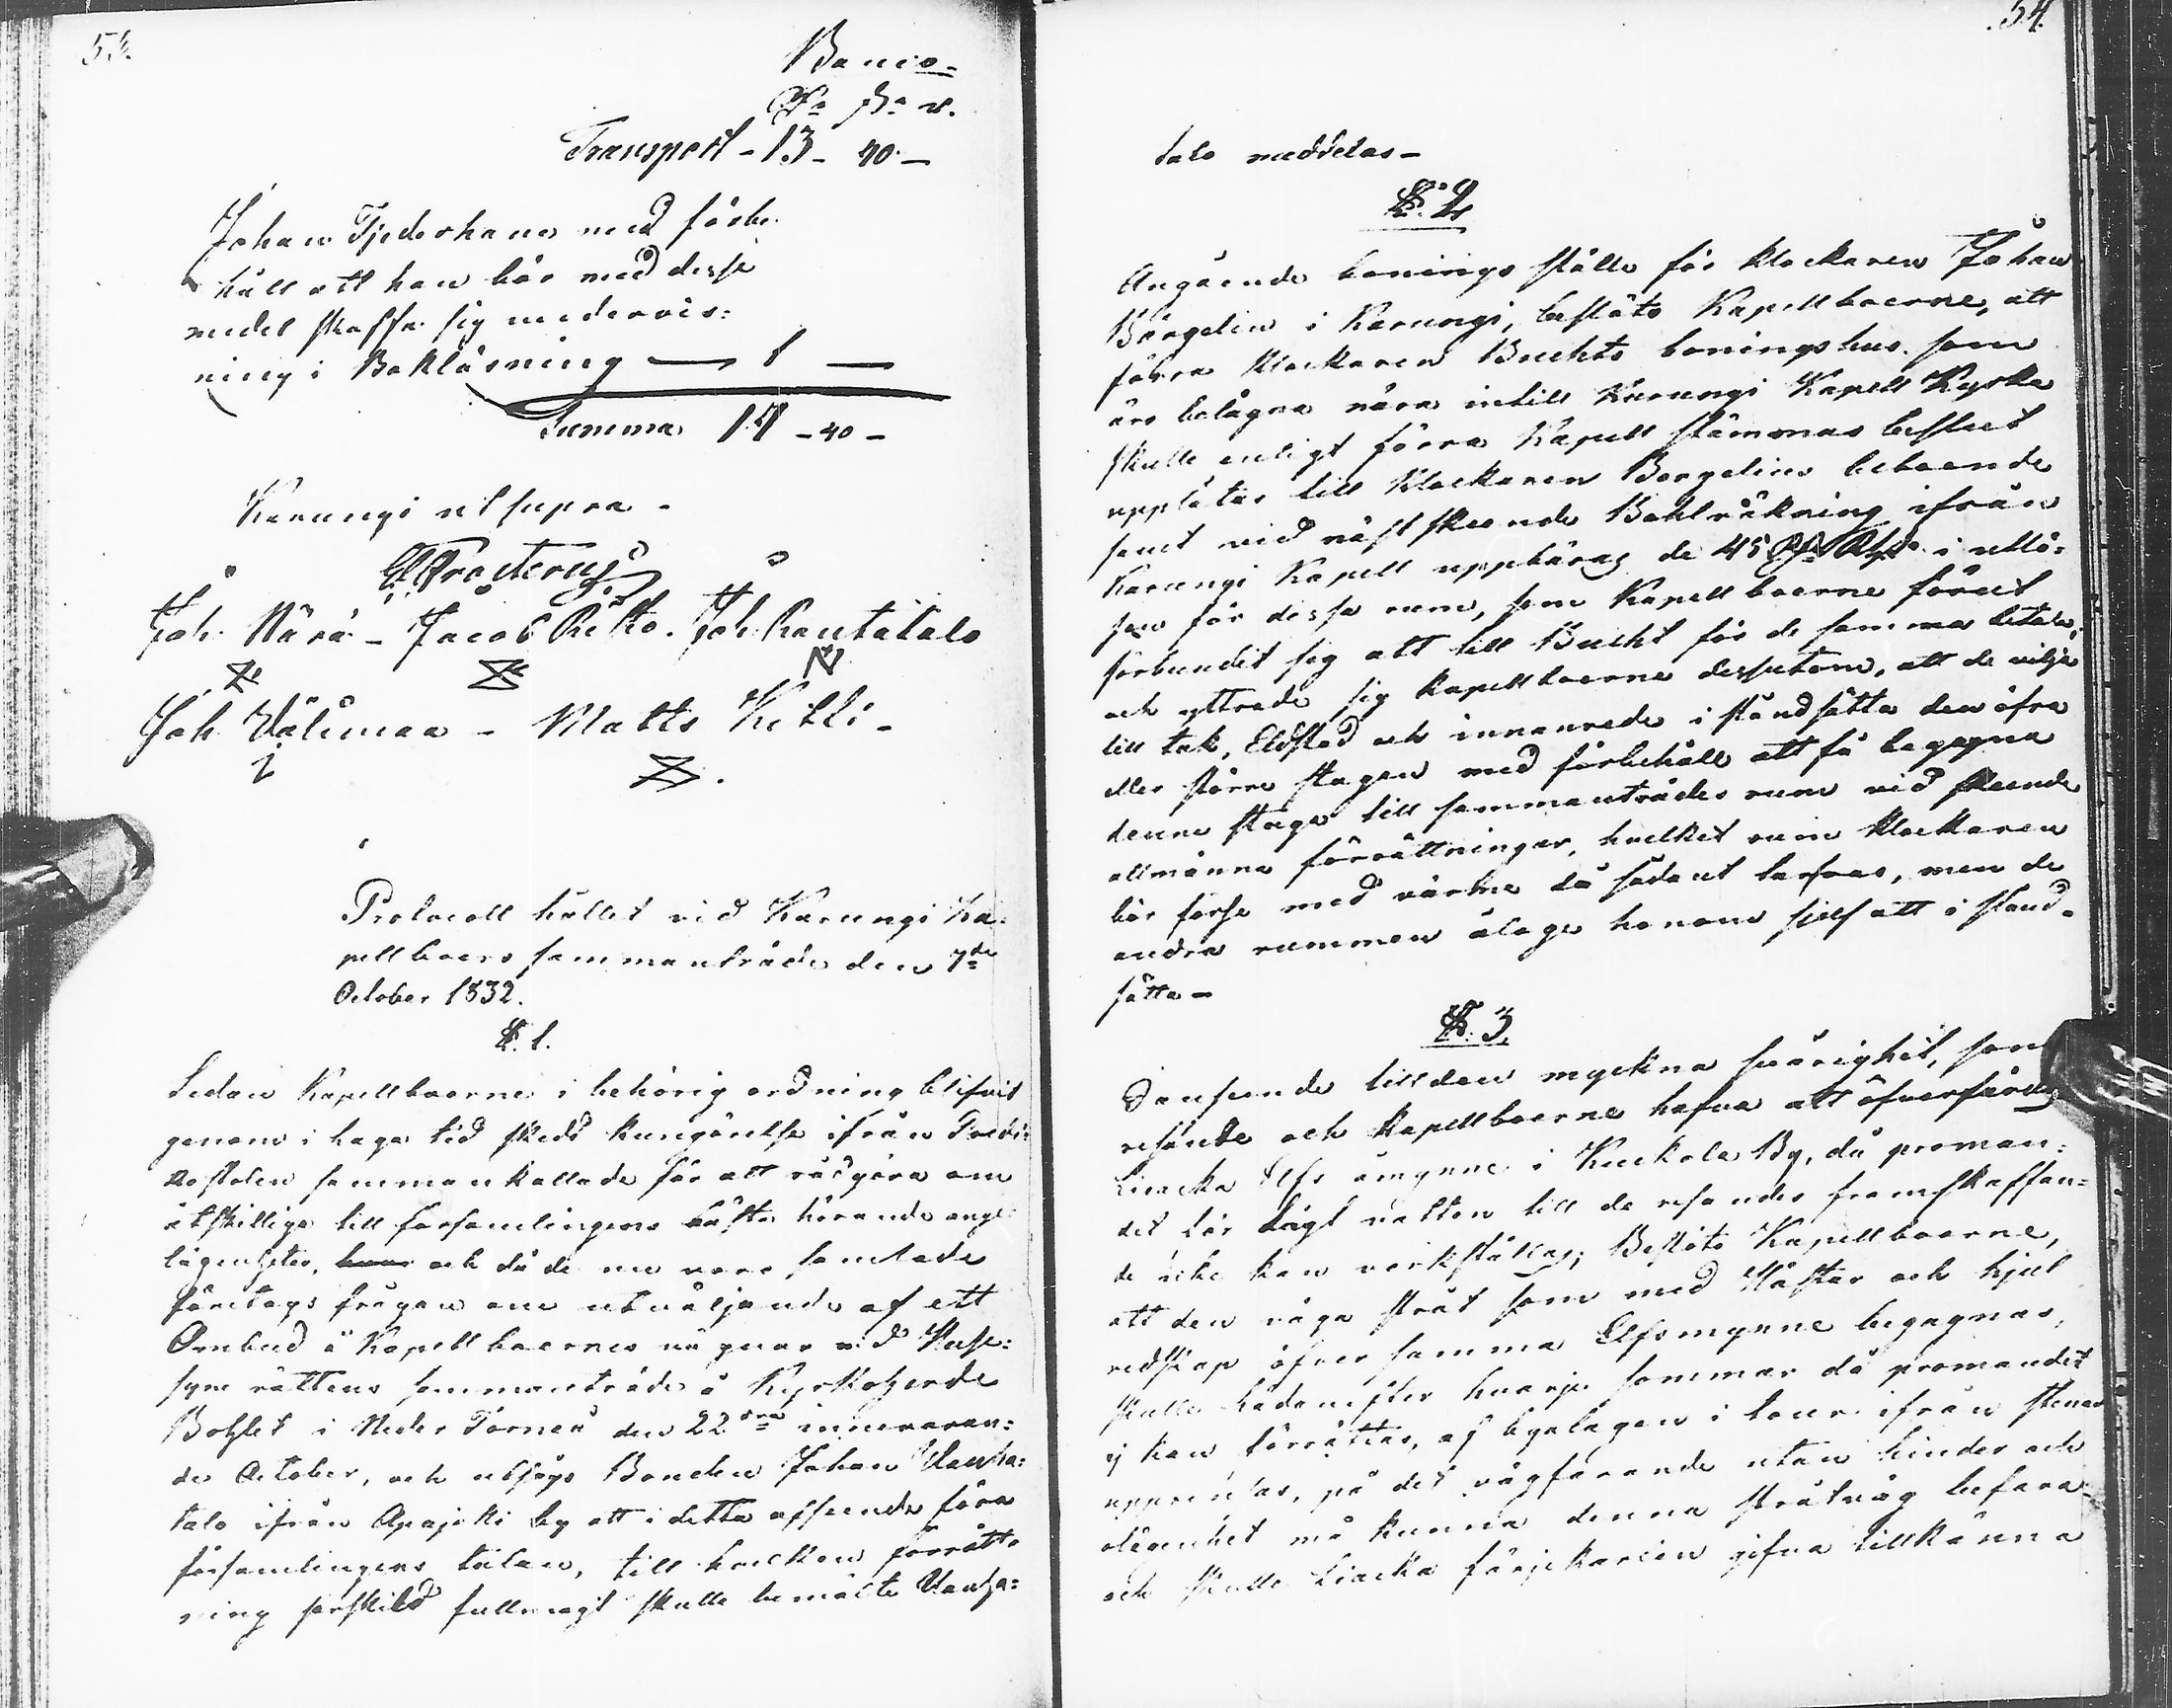 53.
Banco
Rd s. r.
Transport - 13 - 40 -
Johan Tjederhane med förbe-
håll att han bör med desse
medel skaffa sig undervis:
ning i Bokläsning — 1 —
Summa 14 - 40 -
Karungi ut supra -
Joh. Närä - Jacob Riko. Joh. Rautatalo
Joh Välimaa - Matts Kilki -
Protocoll hållet vid Karungi Ka-
pellboers sammanträde den 7de
October 1832.
§. 1.
Sedan Kapellboerne i behörig ordning blifvit
genom i laga tid skedd kungörelse ifrån Predi-
kostolen sammankallade för att rådgöra om
åtskillige till församlingens bästa hörande ange-
lägenheter, och då de nu voro samlade
företogs frågan om utväljande af ett
Ombud å Kapellboernes vägnar vid Huse-
syns rättens sammanträde å Kyrkoherde
Bohlet i Neder Torneå den 22dra innevaran:
de October, och utsågs Bonden Johan Vanha:
talo ifrån Apajoki by att i detta afseende föra
församlingens talan, till hvilken förrätt-
ning serskild fullmagt skulle bemälte Vanha:
54.
talo meddelas -
§. 2.
Angående bonings ställe för klockaren Johan
Borgelin i Karungi, beslöto Kapellboerne, att
förra klockaren Buchts boningshus som
äro belägna nära intill Karungi Kapell Kyrka
skulle enligt förra Kapell stämmas beslut
upplåtas till klockaren Borgelins beboende
samt vid näst skeende Bohlräkning ifrån
Karungi Kapell uppbäras de 45 Rd Rgs i utlö-
sen för dessa rum, som Kapellboerne förut
förbundit sig att till Bucht för de samma betala,
och yttrade sig kapellboerne dessutom, att de vilja
till tak, Eldstad och innanrede i ståndsätta den öfra
eller större stugan med förbehåll att få begagna
denne stuga till sammanträdes rum vid skeende
allmänna förrättningar, hvilket rum klockaren
bör förse med värme då sådant tarfvas, men de
andra rummen ålage honom sjelf att i stånd-
sätta -
§. 3.
I anseende till den myckna svårighet, som
resande och kapellboerne hafva att öfverfara
Liacka Elfs åmynne i Kuckola By, då proman:
det för lågt vatten till de resandes framskaffan:
de icke kan verkställas; Beslöto Kapellboerne,
att den väga stråt som med Hästar och hjul
redskap öfver samma Elfsmynne begagnas,
skulle hädanefter hvarje sommar då promandet
ej kan förrättas, af byalagen i tour ifrån stenar
upprensas, på det vägfarande utan hinder och
olägenhet må kunna denna stråtväg befara
och skulle Liacka färjekarlen gifva tillkänna